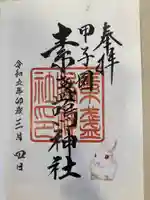 奉拝
甲子園
素盞嗚神社
令和五年卯歳三月四日